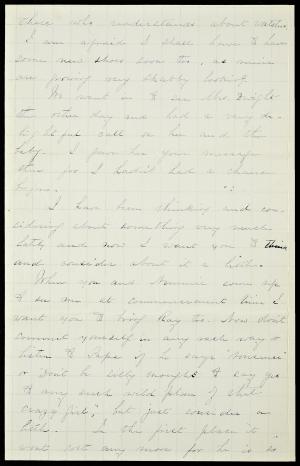 those who understands about watches.
I am afraid I shall have to have
some new shoes soon too, as mine
are growing very shabby looking.
We went in to see Mrs. Dwight
the other day and had a very de-
lightful call on her and the
baby. I gave her your message
then for I hadn't had a chance
before.
I have been thinking and con-
sidering about something very much
lately and now I want you to think
and consider about it a little.
When you and Nannie come up
to see me at commencement time I
want you to bring Ray too. Now don't
commit yourself in any such way &
listen to Papa if he says "nonsense"
or "Don't be silly" to say yes
to any such wild plan of that
crazy girl", but just consider a
little. In the first place it
wont cost any more for he is so